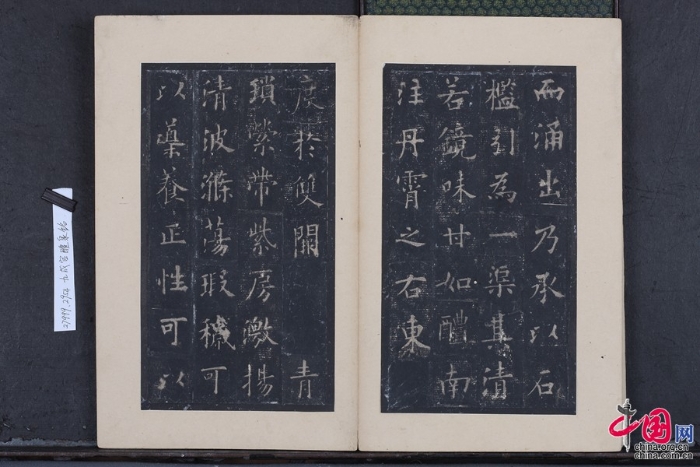 而涌出乃承以石
檻引為一渠其清
若鏡味甘如醴南
注丹霄之右東
度於雙闕 青
瑣縈帶紫房激揚
清波滌蕩瑕穢可
以導養正性可以
九成宫醴泉铭
中国网
china.com.cn
china.org.cn